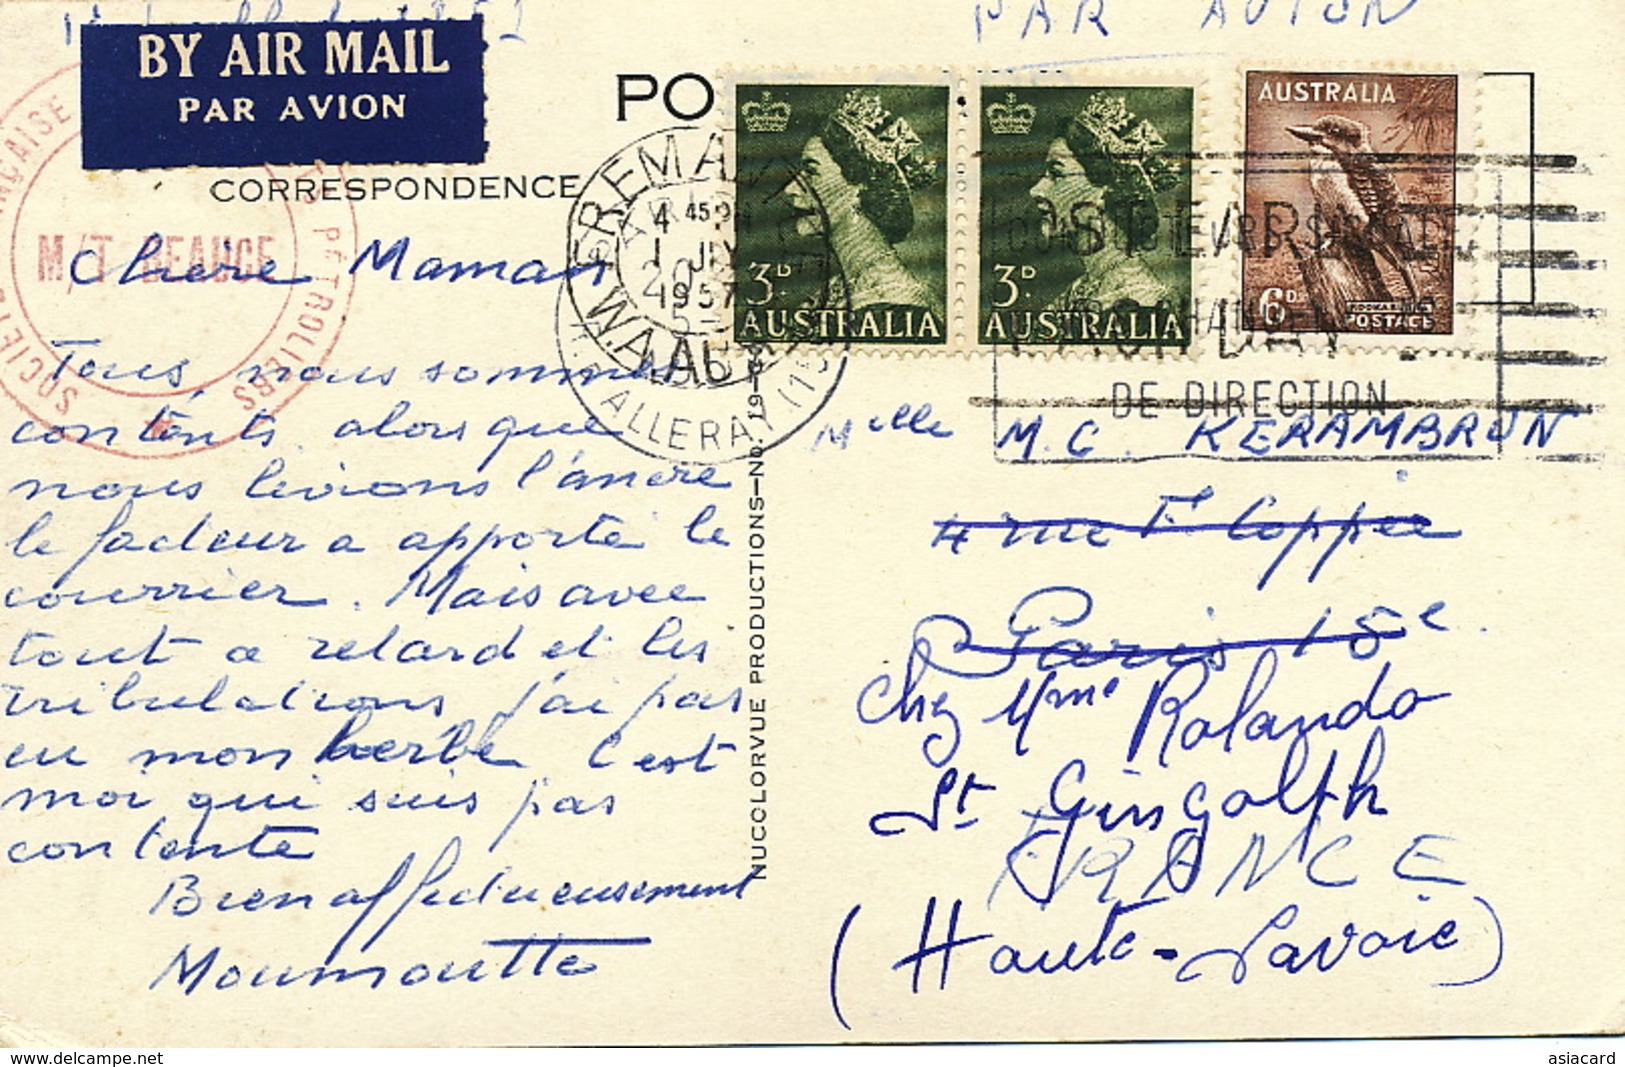 PAR AVION
BY AIR MAIL
PAR AVION
PO
CORRESPONDENCE
SOCIETE FRANÇAISE PETROLIERS
M/T BEAUCE
FREMANTLE
4 45 PM
1 JLY
1957
W.A. AUST
3D
AUSTRALIA
3D
AUSTRALIA
AUSTRALIA
6D
KOOKABURRA
POSTAGE
POST EARLY
EACH DAY
DE DIRECTION
Chère Maman
Tous nous sommes
contents alors que
nous livrons l'ancre
le facteur a apporté le
courrier. Mais avec
tout ce retard et les
tribulations j'ai pas
eu mon herbe c'est
moi qui suis pas
contente
Bien affectueusement
Moumoutte
NUCOLORVUE PRODUCTIONS—No. 19
Melle M.C. KERAMBRUN
4 rue Fs Coppée
Paris 15e
Chez Mme Rolando
St Gingolph
FRANCE
(Haute-Savoie)
www.delcampe.net
asiacard